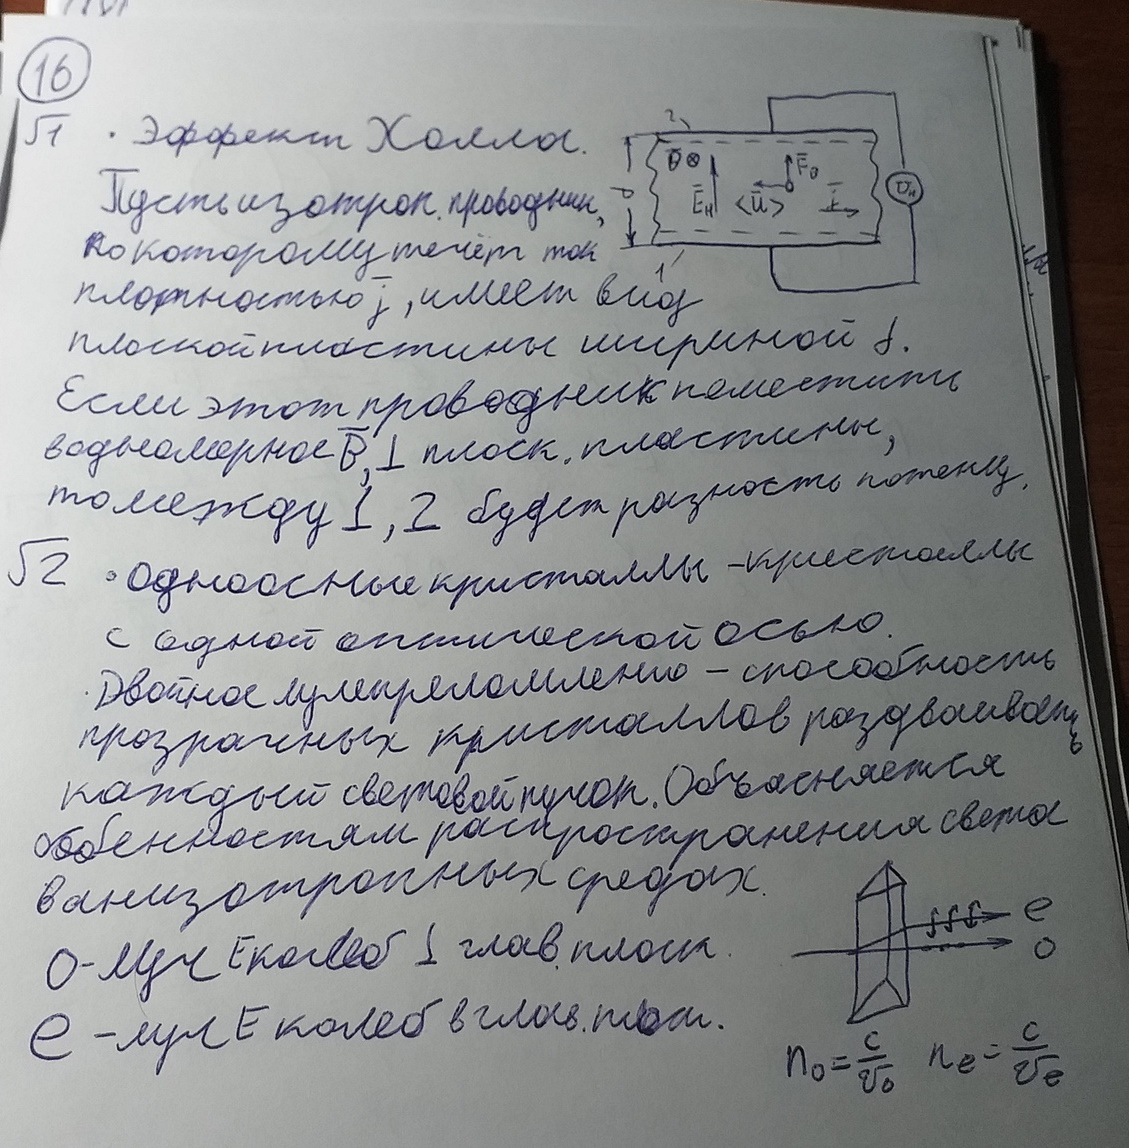 16
√1 · Эффект Холла.
Пусть изотроп. проводник,
по которому течёт ток
плотностью j̄, имеет вид
плоской пластины шириной d.
Если этот проводник поместить
в однюмерное B̄, ⊥ плоск. пластины,
то между 1, 2 будет разность потенц.
2
B̄ ⊗
F̄
d
Ē_H
<ū>
U_H
1
√2 · Одноосные кристаллы – кристаллы
с одной оптической осью.
· Двойное лучепреломление – способность
прозрачных кристаллов раздваивать
каждый световой пучок. Объясняется
особенностям распространения света
в анизотропных средах.
о-луч E колеб ⊥ глав. плоск.
e – луч E колеб в глав. плоск.
e
o
n₀ = c/v₀ nₑ = c/vₑ